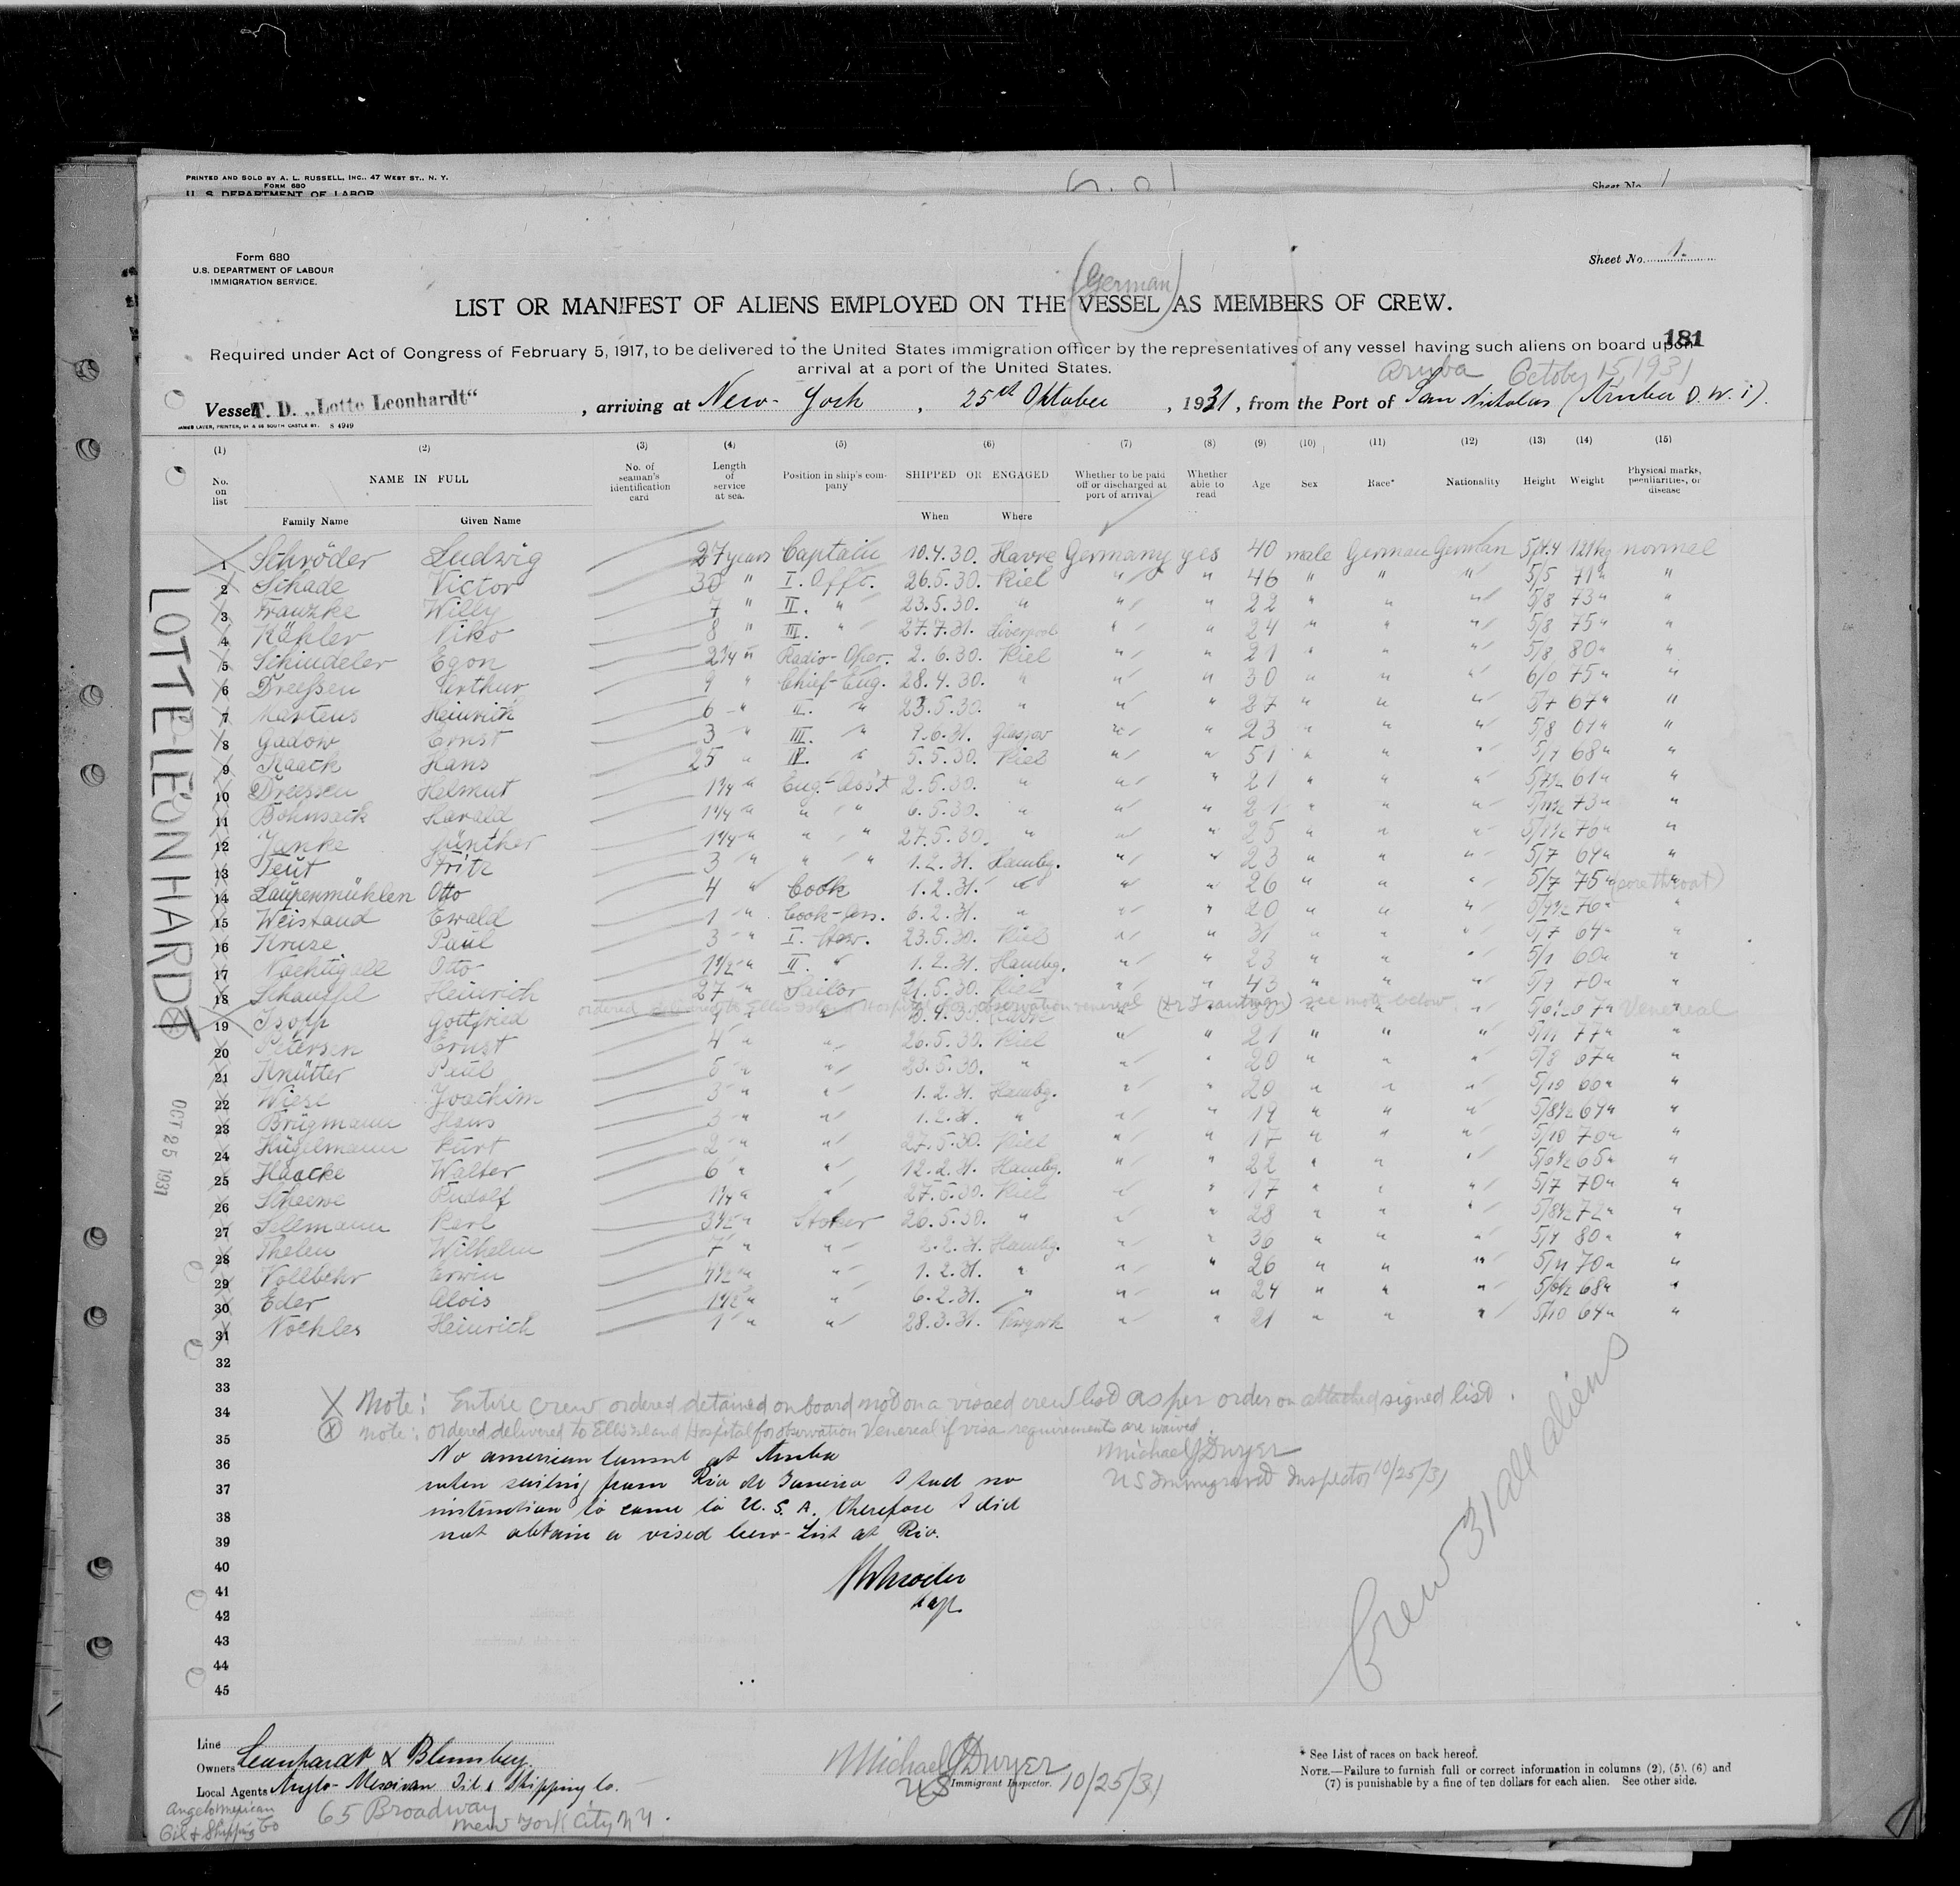 PRINTED AND SOLD BY A. L. RUSSELL, INC., 47 WEST ST., N. Y.
FORM 680
U. S. DEPARTMENT OF LABOR
Sheet No. 1
Form 680
U.S. DEPARTMENT OF LABOUR
IMMIGRATION SERVICE.
Sheet No. 1.
(German)
LIST OR MANIFEST OF ALIENS EMPLOYED ON THE VESSEL AS MEMBERS OF CREW.
181
Required under Act of Congress of February 5, 1917, to be delivered to the United States immigration officer by the representatives of any vessel having such aliens on board upon
arrival at a port of the United States.
Aruba October 15, 1931
Vessel T. D. „Lotte Leonhardt“, arriving at New-York, 25th Oktober, 1931, from the Port of San Nicholas (Aruba D. W. I).
JAMES LAVER, PRINTER, 64 & 66 SOUTH CASTLE ST. S 4949
(1) (2) (3) (4) (5) (6) (7) (8) (9) (10) (11) (12) (13) (14) (15)
No. on list NAME IN FULL No. of seaman's identification card Length of service at sea. Position in ship's company SHIPPED OR ENGAGED Whether to be paid off or discharged at port of arrival Whether able to read Age Sex Race* Nationality Height Weight Physical marks, peculiarities, or disease
Family Name Given Name When Where
1 Schröder Ludwig 27 years Captain 10.4.30. Havre Germany yes 40 male German German 5ft.4 121kg normal
2 Schade Victor 30 " I. Offc. 26.5.30. Kiel " " 46 " " " 5/5 71" "
3 Franzke Willy 7 " II. " 23.5.30. " " " 22 " " " 5/8 73" "
4 Kähler Niko 8 " III. " 27.7.31. Liverpool " " 24 " " " 5/8 75" "
5 Schindeler Egon 2¼ " Radio-Oper. 2.6.30. Kiel " " 21 " " " 5/8 80" "
6 Dreessen Arthur 9 " Chief-Eng. 28.4.30. " " " 30 " " " 6/0 75" "
7 Martens Heinrich 6 " II. " 23.5.30. " " " 27 " " " 5/7 67" "
8 Gadow Ernst 3 " III. " Glasgow " " 23 " " " 5/8 "
9 Raack Hans 25 " " 5.5.30. Kiel " " 51 " " " 68" "
10 Dreessen Helmut 1¼ " Eng.-Ass't 2.5.30. " " " 21 " " " 61" "
11 Bohnsack Harald 1¼ " " " 6.5.30. " " " 21 " " " 73" "
12 Janke Günther 1¼ " " " 27.5.30. " " " 25 " " " 76" "
13 Teut Fritz 3 " " " 1.2.31. Hambg. " " 23 " " " 5/7 "
14 Laupenmühlen Otto 4 " Cook 1.2.31. " " " 26 " " " 5/7 75" (sore throat)
15 Weistand Ewald 1 " Cook-Ass. 6.2.31. " " " 20 " " " 76" "
16 Kruse Paul 3 " I. Stew. 23.5.30. Kiel " " 31 " " " 5/7 64" "
17 Nachtigall Otto 1½ " II. " 1.2.31. Hambg. " " 23 " " " 60" "
18 Heinrich 27 " Sailor 21.5.30. Kiel " " 43 " " " 70" "
ordered delivered to Ellis Island Hospital for observation venereal see note below
19 Isopp Gottfried " Venereal
20 Petersen Ernst 4 " " 26.5.30. Kiel " " 21 " " " 5/11 77" "
21 Knütter Paul 5 " " 23.5.30. " " " 20 " " " 5/8 67" "
22 Wiese Joachim 3 " " 1.2.31. Hambg. " " 20 " " " 5/10 "
23 Brügmann Hans 3 " " 1.2.31. " " " 19 " " " 5/8½ "
24 Hügelmann Kurt 2 " " 27.5.30. Kiel " " 17 " " " 5/10 70" "
25 Haacke Walter 6 " " 12.2.31. Hambg. " " 22 " " " 5/6½ 65" "
26 Scheewe Rudolf 1¼ " " 27.5.30. Kiel " " 17 " " " 5/7 70" "
27 Sellmann Karl 3½ " Stoker 26.5.30. " " " 28 " " " 5/8½ 72" "
28 Thelen Wilhelm 7 " " 2.2.31. Hambg. " " 36 " " " 80" "
29 Vollbehr Erwin " " 1.2.31. " " " 26 " " " 5/11 70" "
30 Eder Alois 1½ " " 6.2.31. " " " 24 " " " 68" "
31 Heinrich 1 " " 28.3.31. Newyork " " 21 " " " 5/10 64" "
32
33
34 X Note: Entire Crew ordered detained on board not on a visaed crew list as per order on attached signed list.
35 (X) note: ordered delivered to Ellis Island Hospital for observation Venereal if visa requirements are waived
36 No american Consul at Aruba
Michael J Dwyer
37 when sailing from Rio de Janeiro I had no
US Immigrant Inspector 10/25/31
38 instruction to come to U. S. A. therefore I did
39 not obtain a vised Crew-List at Rio.
40
41 Schroeder
42 Capt.
43
44
45
Crew 31 all aliens
LOTTE LEONHARDT
OCT 25 1931
Line
Owners Leonhardt & Blumberg.
Local Agents Anglo-Mexican Oil & Shipping Co.
Anglo Mexican
Oil & Shipping Co
65 Broadway
New York City N Y.
Michael J Dwyer
US Immigrant Inspector. 10/25/31
* See List of races on back hereof.
NOTE.—Failure to furnish full or correct information in columns (2), (5), (6) and
(7) is punishable by a fine of ten dollars for each alien. See other side.